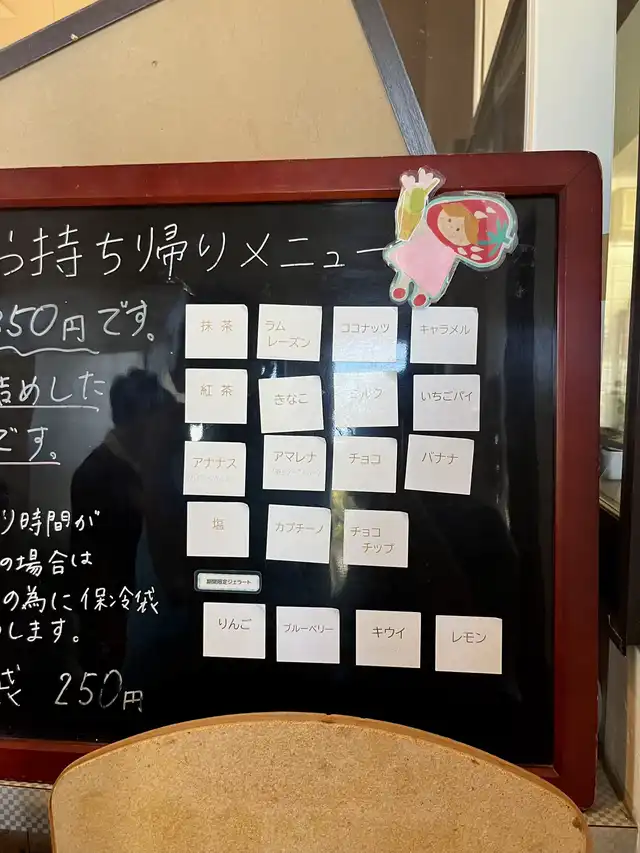 ら持ち帰りメニュー
350円です。
詰めした
です。
り時間が
の場合は
の為に保冷袋
します。
袋 250円
抹茶
ラム
レーズン
ココナッツ
キャラメル
紅茶
きなこ
ミルク
いちごパイ
アナナス
アマレナ
チョコ
バナナ
塩
カプチーノ
チョコ
チップ
期間限定ジェラート
りんご
ブルーベリー
キウイ
レモン